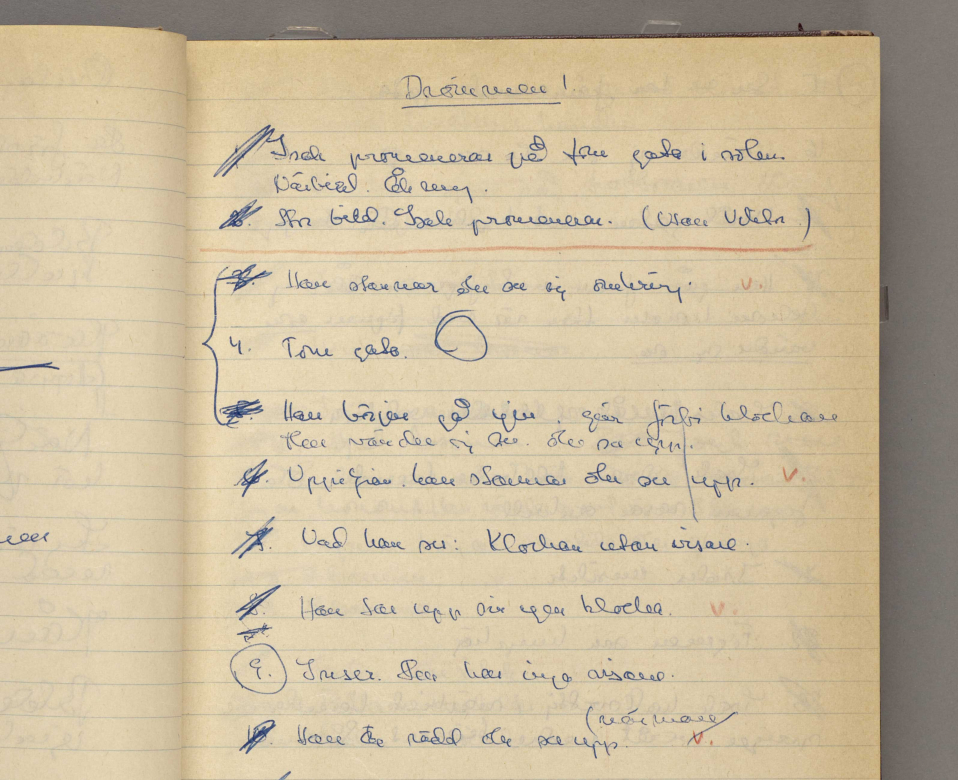 Drömmen!
1. Isak promenerar på tom gata i solen.
Närbild.
2. Stor bild. Isak promenerar. (Utan
3. Han stannar och ser sig omkring.
4. Tom gata.
5. Han börjar gå igen, går förbi klockan
Han vänder sig om och ser upp.
6. Uppifrån. han stannar och ser upp.
7. Vad han ser: Klockan utan visare.
8. Han tar upp sin egen klocka. v.
9. Insert. Den har inga visare.
(närmare
10. Han är rädd och ser upp. v.